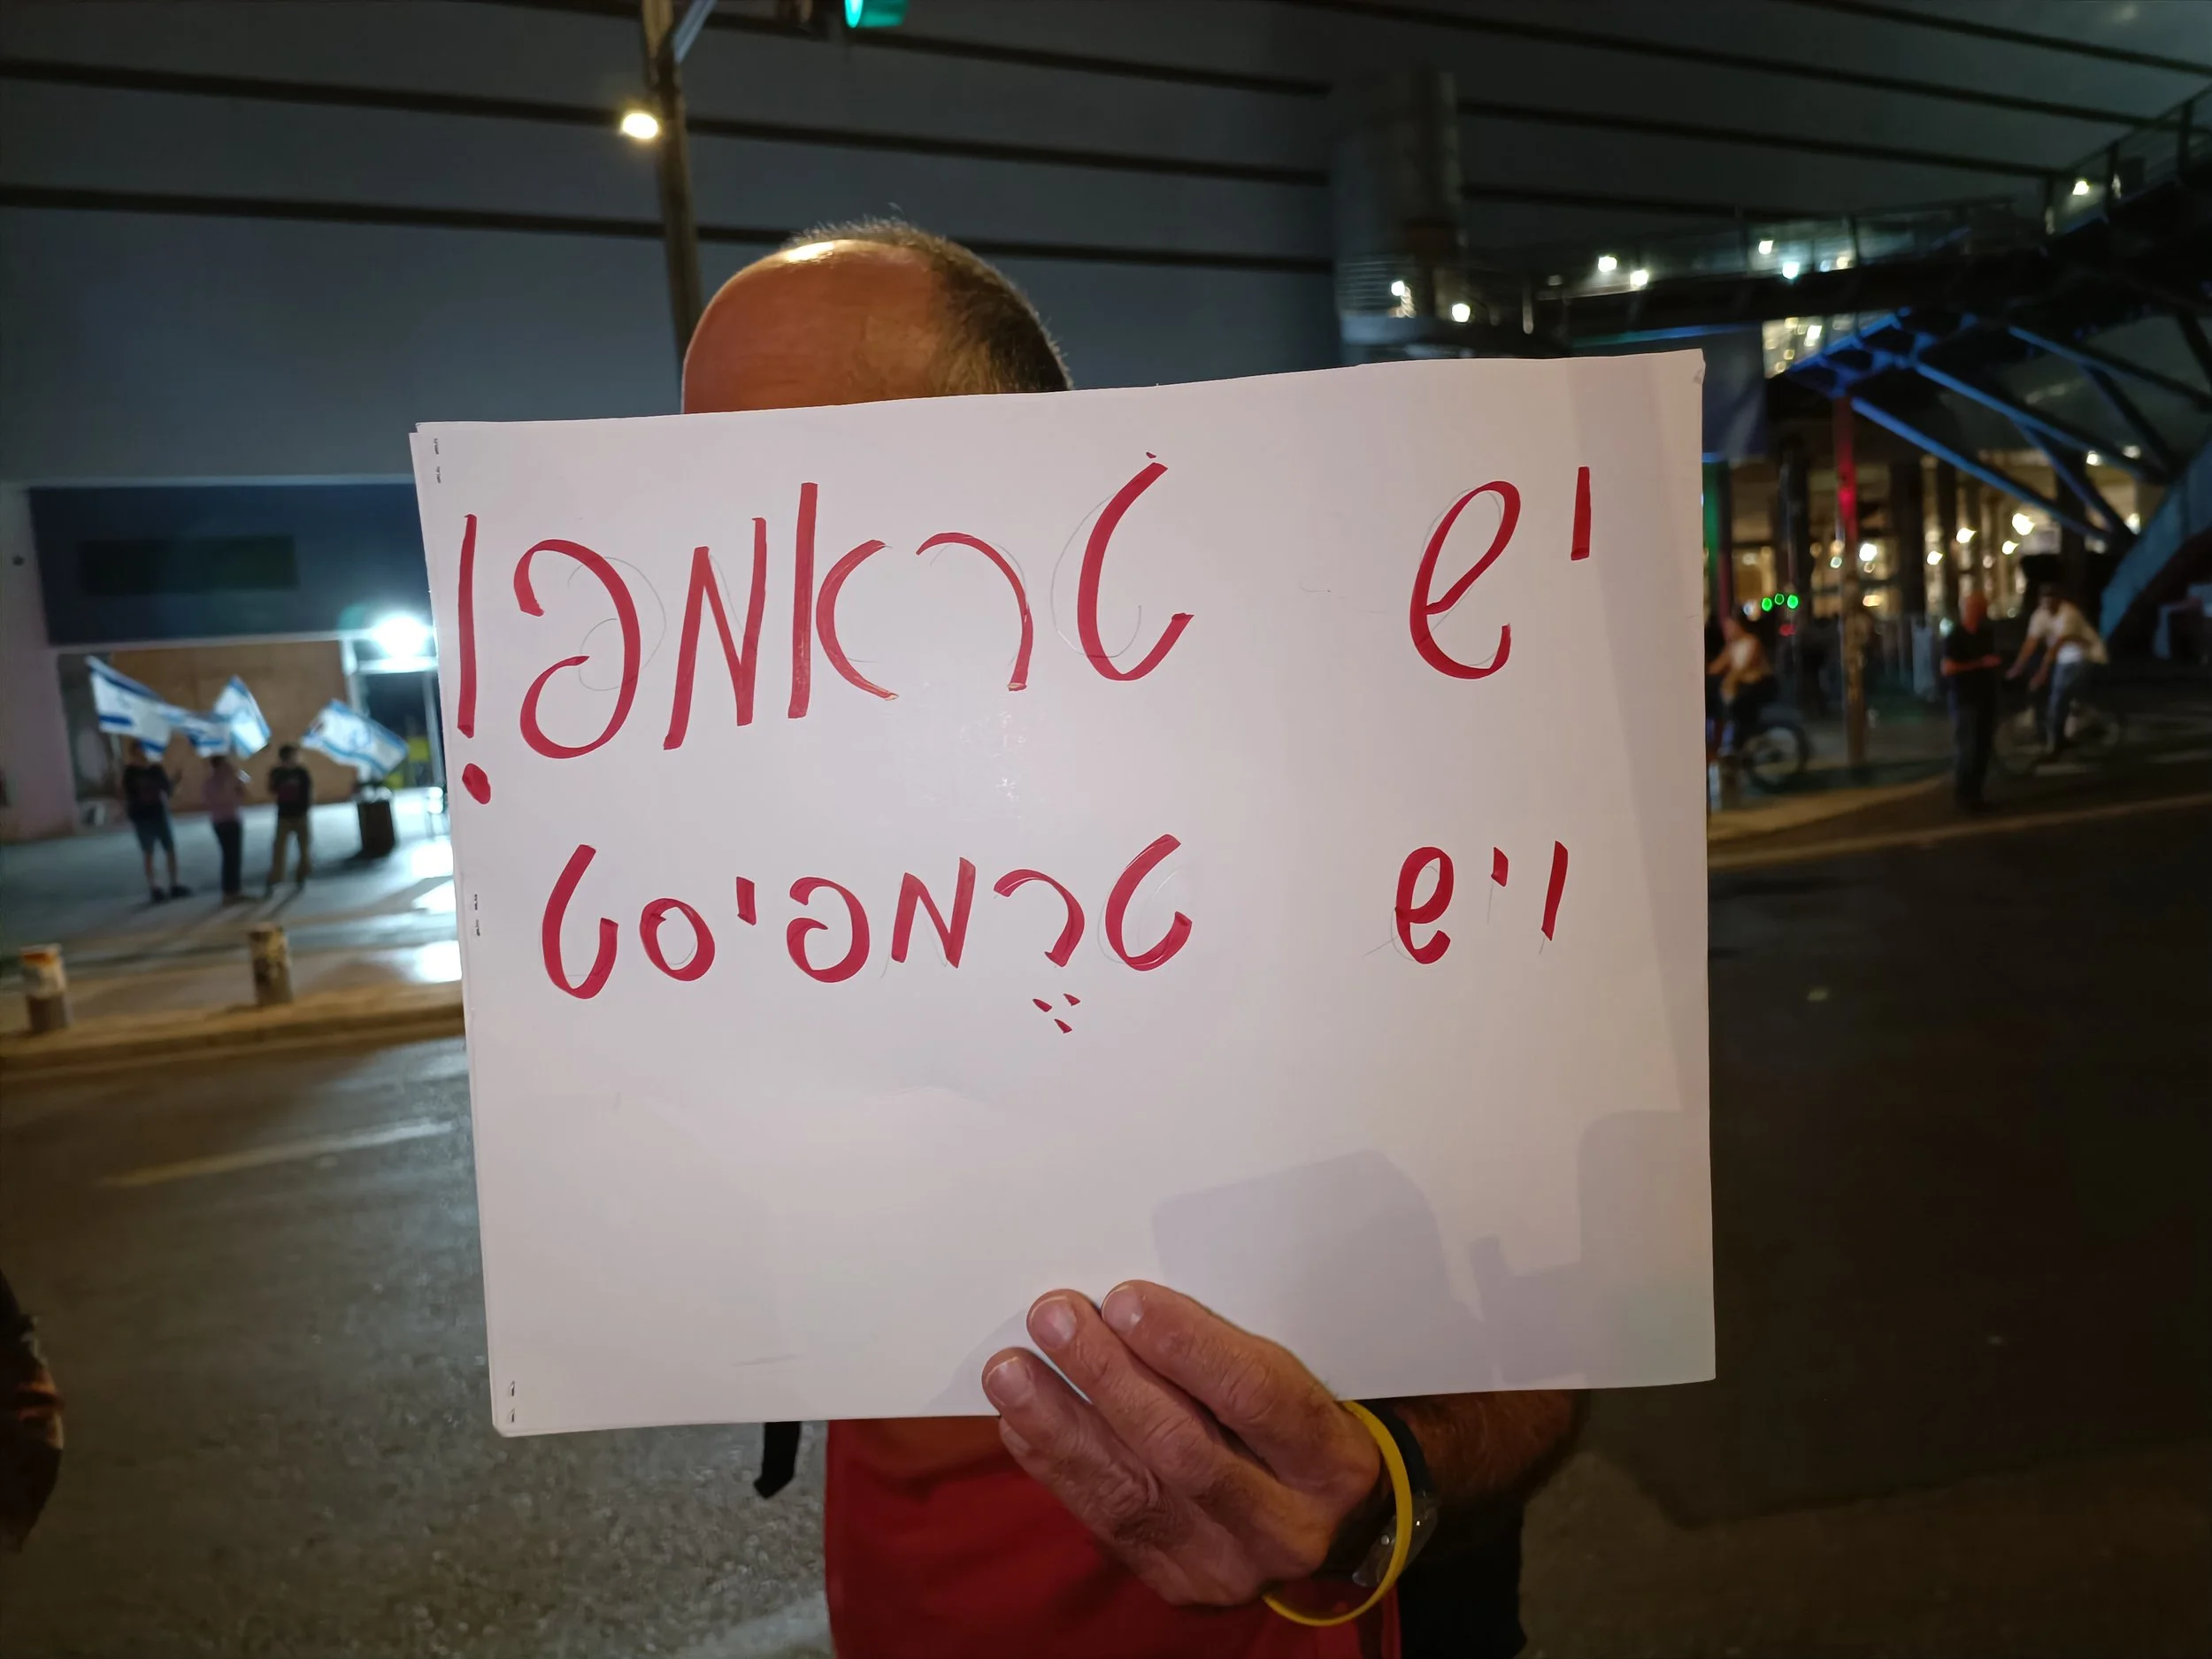 יש טראמפ!
ויש טרֶמפיסט